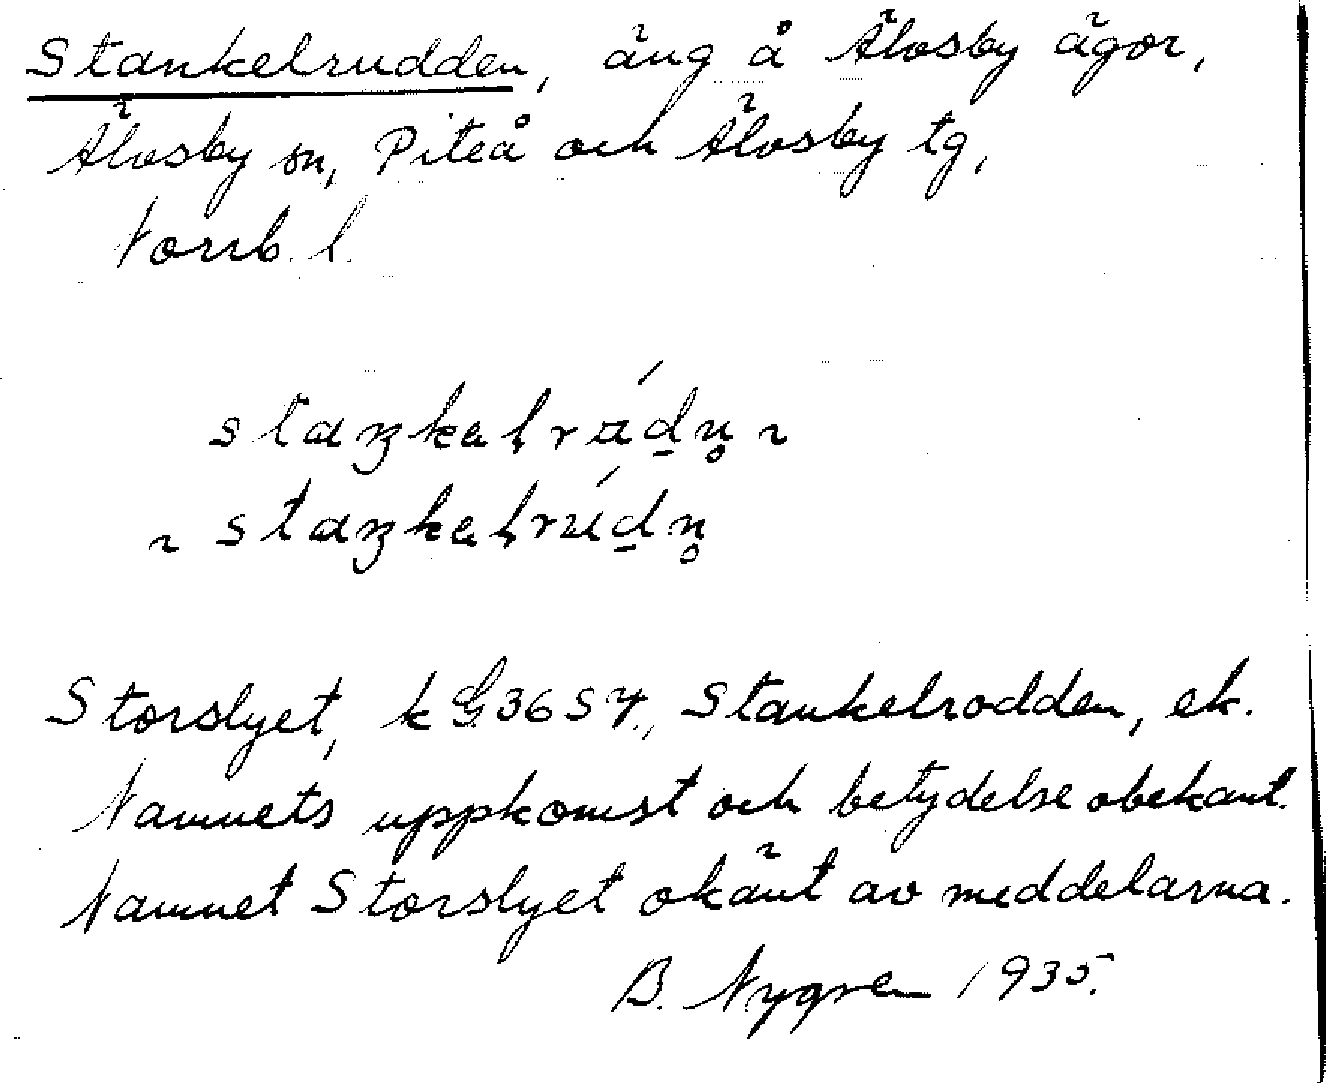 Stankelrudden, äng å Älvsby ägor,
Älvsby sn, Piteå och Älvsby tg,
Norrb. l.
Storslyet, k G36S7., Stankelrodden, ek.
Namnets uppkomst och betydelse obekant.
Namnet Storslyet okänt av meddelarna.
B. Nygren 1935.